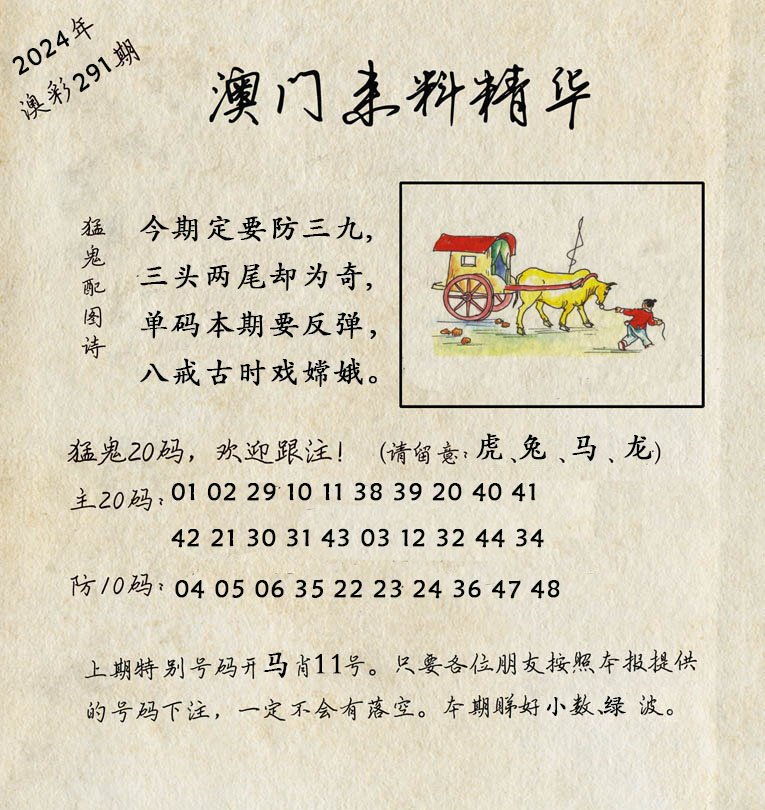 2024年
澳彩291期
澳门来料精华
猛鬼配图诗
今期定要防三九,
三头两尾却为奇,
单码本期要反弹,
八戒古时戏嫦娥。
猛鬼20码，欢迎跟注！(请留意:虎、兔、马、龙)
主20码: 01 02 29 10 11 38 39 20 40 41
42 21 30 31 43 03 12 32 44 34
防10码: 04 05 06 35 22 23 24 36 47 48
上期特别号码开马肖11号。只要各位朋友按照本报提供
的号码下注，一定不会有落空。本期睇好小数、绿 波。